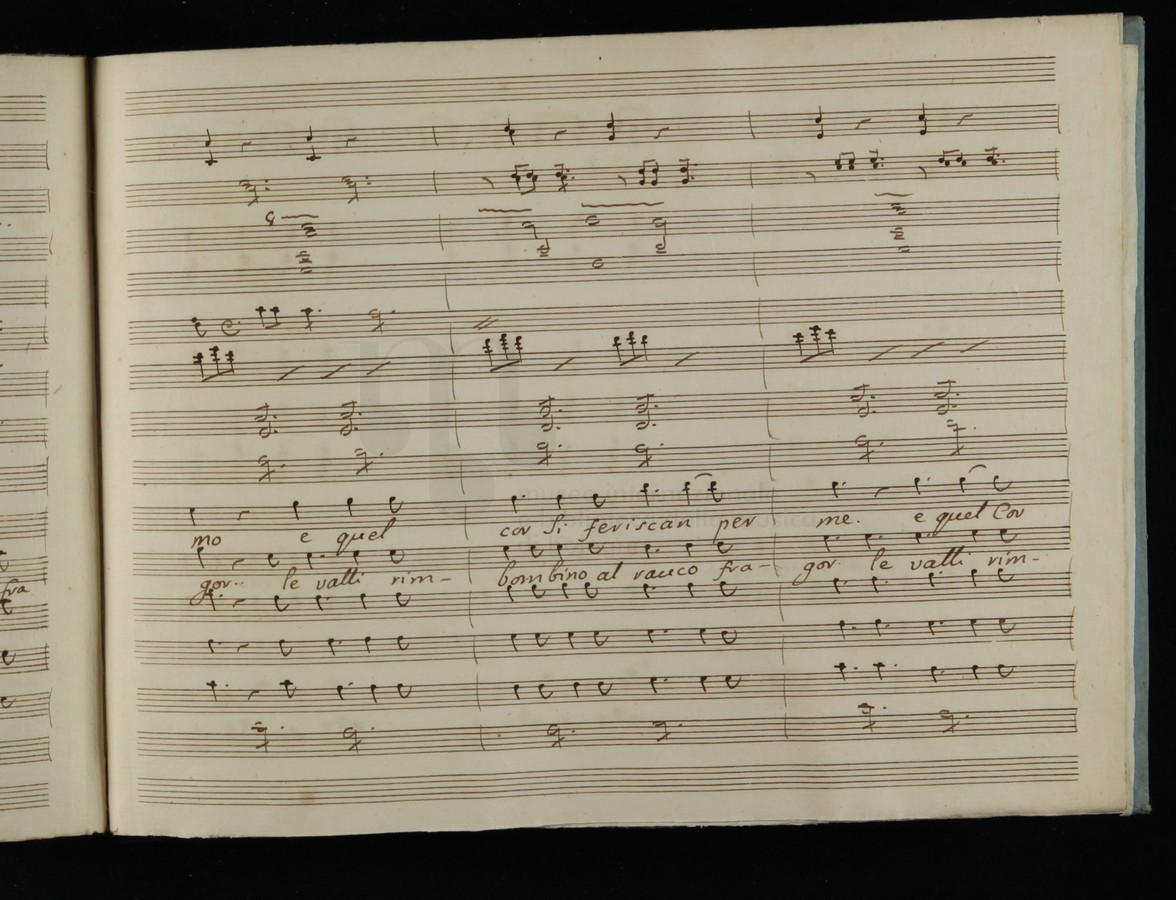 mo e quel cor si feriscan per me. e quel Cor
gor. le valli rim- bombino al rauco fra- gor. le valli rim-
fra